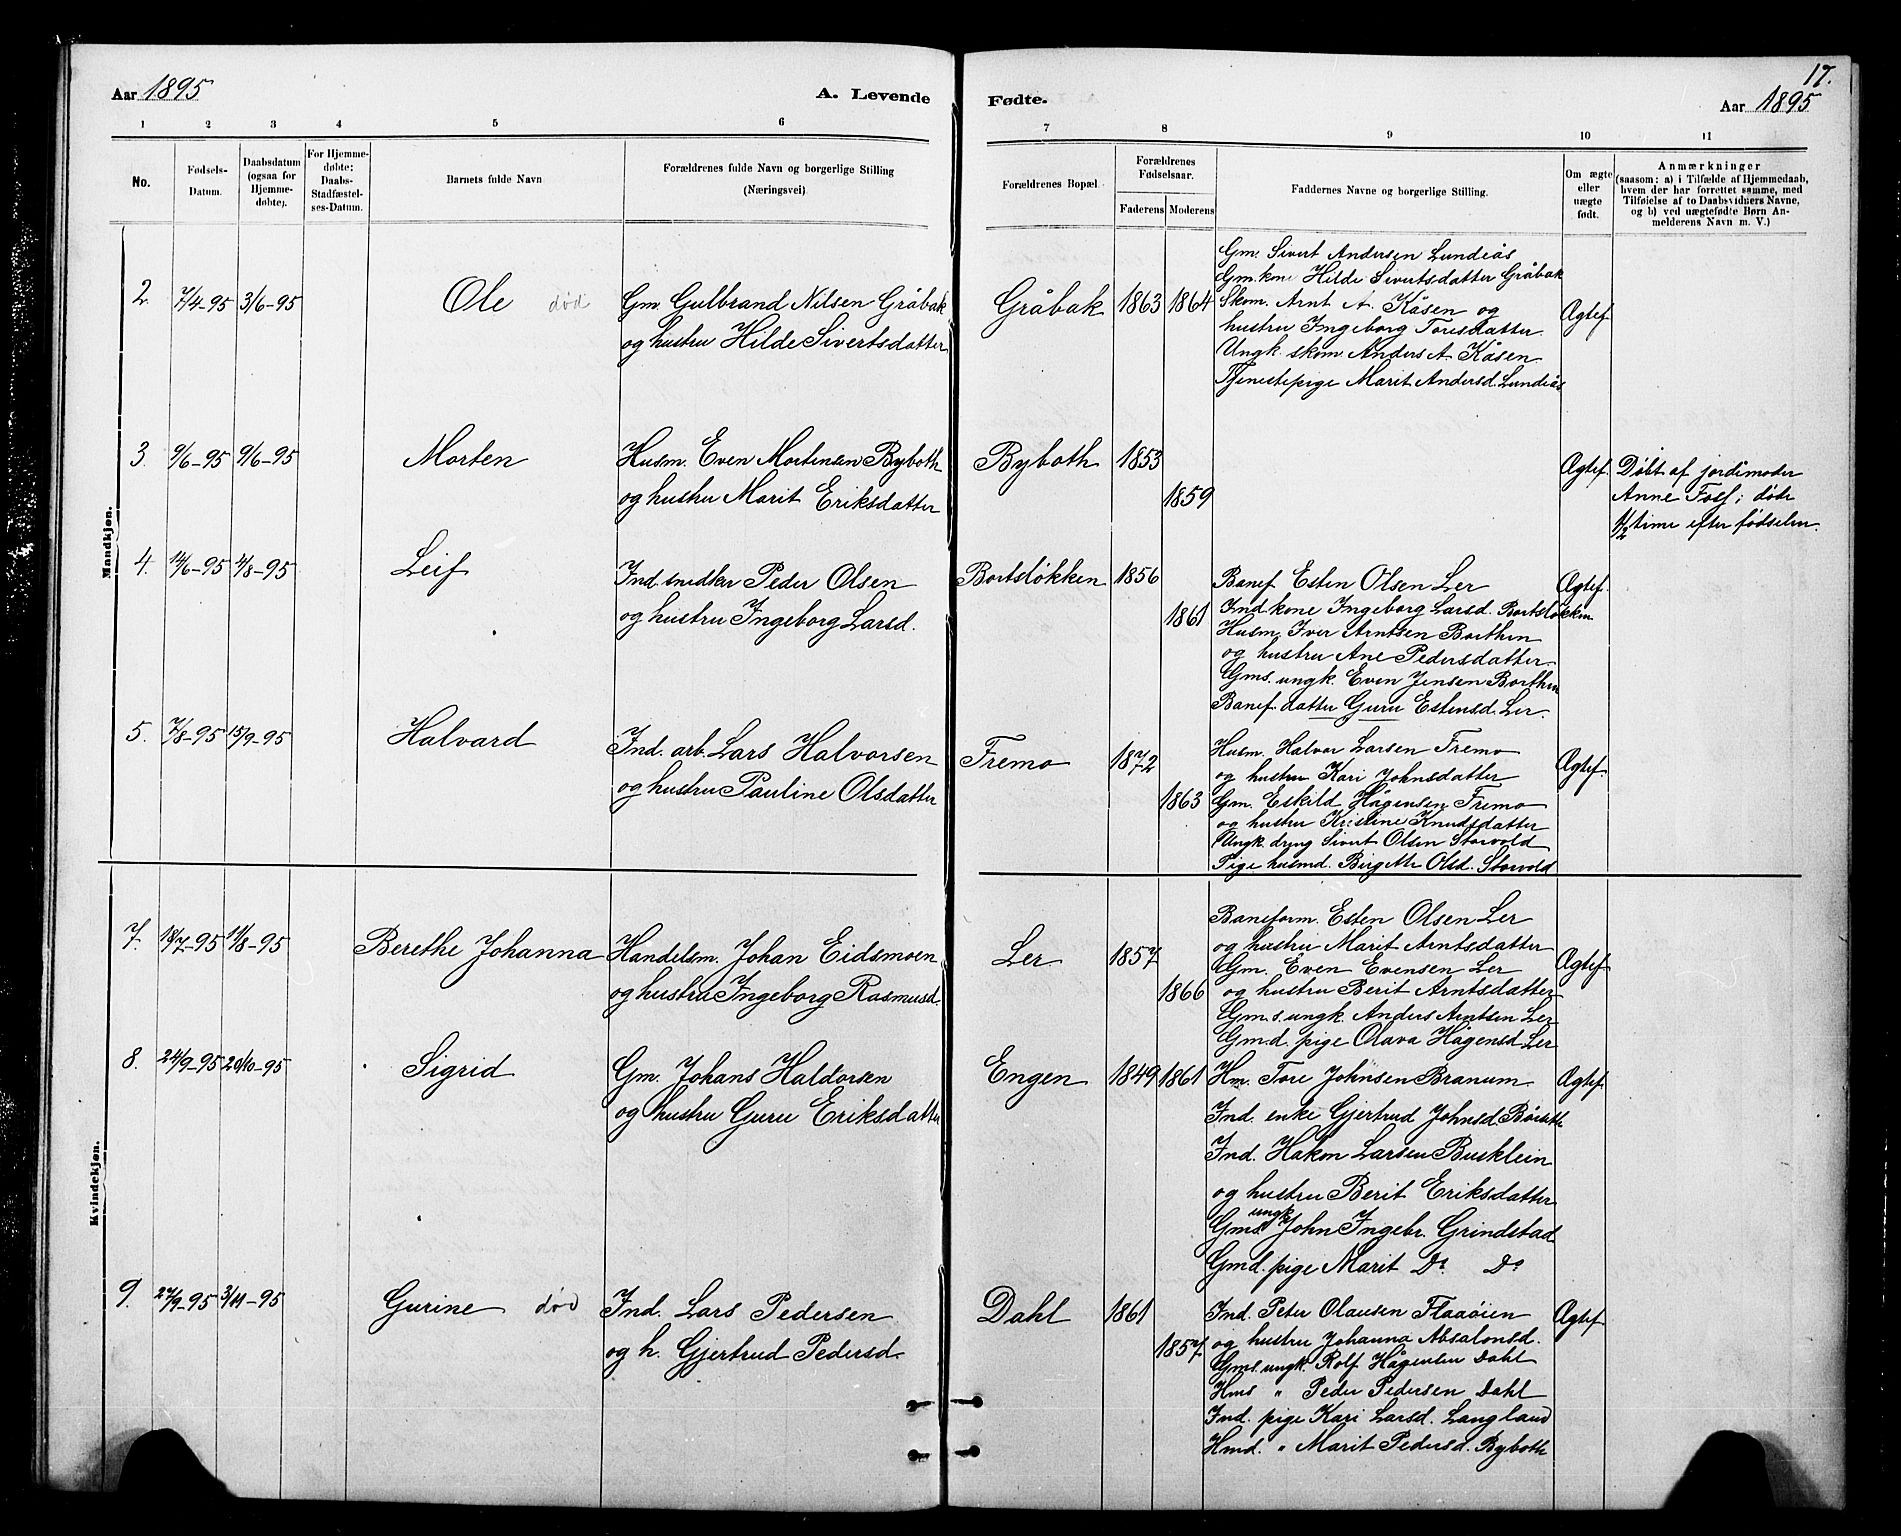 Aar 1895
A. Levende
Fødte.
17.
Aar 1895
1 2 3 4 5 6 7 8 9 10 11
No.
Fødsels-
Datum.
Daabsdatum
(ogsaa for
Hjemme-
døbte).
For Hjemme-
døbte:
Daabs-
Stadfæstel-
ses-Datum.
Barnets fulde Navn
Forældrenes fulde Navn og borgerlige Stilling
(Næringsvei)
Forældrenes Bopæl
Forældrenes
Fødselsaar.
Faderens Moderens
Faddernes Navne og borgerlige Stilling.
Om ægte
eller
uægte
født.
Anmærkninger
(saasom: a) i Tilfælde af Hjemmedaab,
hvem der har forrettet samme, med
Tilføielse af to Daabsvidners Navne,
og b) ved uægtefødte Børn An-
melderens Navn m. V.)
Mandkjøn.
2. 7/4-95 3/6-95 Ole død
Gm. Gulbrand Nilsen Gråbak
og hustru Hilde Sivertsdatter
Gråbak 1863 1864
Gm. Sivert Andersen Lundiås
Gm.kone Hilde Sivertsdatter Gråbak
Skom. Arnt A. Kåsen og
hustru Ingeborg Toresdatter.
Ungk. skom. Anders A. Kåsen
Tjenestepige Marit Andersd. Lundiås
Ægtef.
3. 9/6-95 9/6-95 Morten
Husm. Even Mortensen Byboth
og hustru Marit Eriksdatter
Byboth 1853
1859
Ægtef.
Døbt af jordmoder
Anne Foss; døde
1/2 time efter fødselen.
4. 14/6-95 4/8-95 Leif
Ind. snedker Peder Olsen
og hustru Ingeborg Larsd.
Bortsløkken 1856
1861
Banef. Esten Olsen Ler
Ind. kone Ingeborg Larsd. Bortsløkken
Husm. Iver Arntsen Borthen
og hustru Ane Pedersdatter
Gms. ungk. Even Jensen Borthen
Banef. datter Guru Estensd. Ler.
Ægtef.
5. 7/8-95 15/9-95 Halvard
Ind. arb. Lars Halvorsen
og hustru Pauline Olsdatter
Fremo 1872
1863
Husm. Halvor Larsen Fremo
og hustru Kari Johnsdatter
Gm. Eskild Hågensen Fremo
og hustru Kristine Knudsdatter
Ungk. dreng Sivert Olsen Storvold
Pige husmd. Birgitte Olsd. Storvold
Ægtef.
Kvindekjøn.
7. 18/7-95 11/8-95 Berethe Johanna
Handelsm. Johan Eidsmoen
og hustru Ingeborg Rasmusd.
Ler 1857
1866
Baneform. Esten Olsen Ler
og hustru Marit Arntsdatter
Gm. Even Evensen Ler
og hustru Berit Arntsdatter
Gm.s. ungk. Anders Arntsen Ler
Gm.d. pige Olava Hågensd. Ler
Ægtef.
8. 24/9-95 20/10-95 Sigrid
Gm. Johans Haldorsen
og hustru Guru Eriksdatter
Engen 1849 1861
Hm. Tore Johnsen Branum
Ind. enke Gjertrud Johnsd.
Ind. Hakon Larsen Busklein
og hustru Berit Eriksdatter
Gms. ungk. John Ingebr. Grindstad
Gmd. pige Marit Do. Do
Ægtef.
9. 27/9-95 3/11-95 Gurine død
Ind. Lars Pedersen
og h. Gjertrud Pedersd.
Dahl 1861
1857
Ind. Peter Olausen Flaaøien
og hustru Johanna Absalonsd.
Gms. ungk. Rolf Hågensen Dahl
Hms " Peder Pedersen Dahl
Ind. pige Kari Larsd. Langland
Hmd. " Marit Pedersd. Byboth
Ægtef.